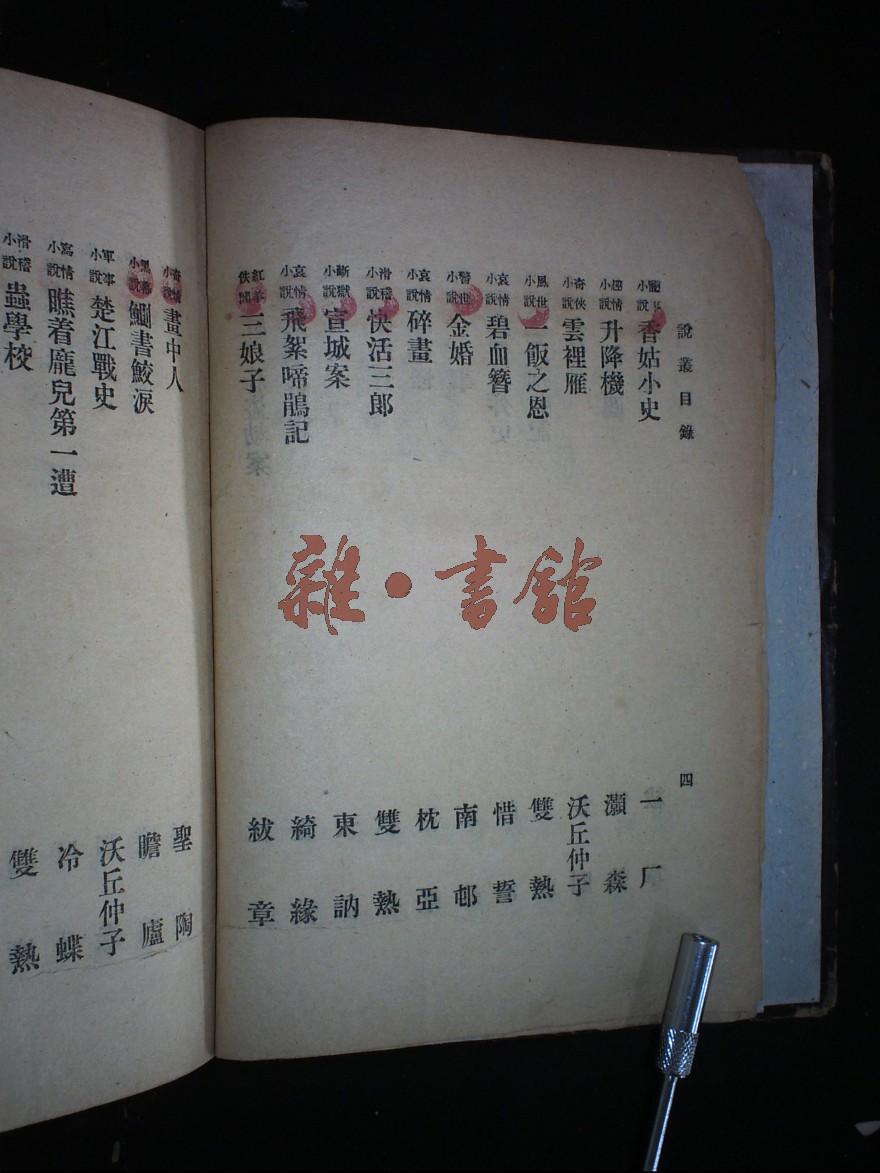 說叢目錄 四
小說 香姑小史 一厂
趣情小說 升降機 灝森
奇俠小說 雲裡雁 沃丘仲子
風世小說 一飯之恩 雙熱
哀情小說 碧血簪 惜誓
警世小說 金婚 南邨
哀情小說 碎畫 枕亞
滑稽小說 快活三郎 雙熱
斷獄小說 宣城案 東訥
哀情小說 飛絮啼鵑記 綺緣
紅羊佚聞 三娘子 紱章
奇情小說 畫中人 聖陶
黑幕小說 書鮫淚 瞻廬
軍事小說 楚江戰史 沃丘仲子
寫情小說 瞧着龐兒第一遭 冷蝶
滑稽小說 蟲學校 雙熱
雜·書館